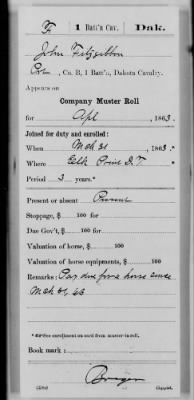 F | 1 Batt'n Cav. | Dak.
John Fitzgibbon
, Co. B, 1 Batt'n, Dakota Cavalry.
Appears on
Company Muster Roll
for Apl , 1863.
Joined for duty and enrolled:
When Mch 31 , 1863.*
Where Elk Point D.T. *
Period 3 years.*
Present or absent Present
Stoppage, $ 100 for
Due Gov't, $ 100 for
Valuation of horse, $ 100
Valuation of horse equipments, $ 100
Remarks: Pay due for a horse since
Mch 31, 63
*See enrollment on card from muster-in roll.
Book mark:
Copyist.